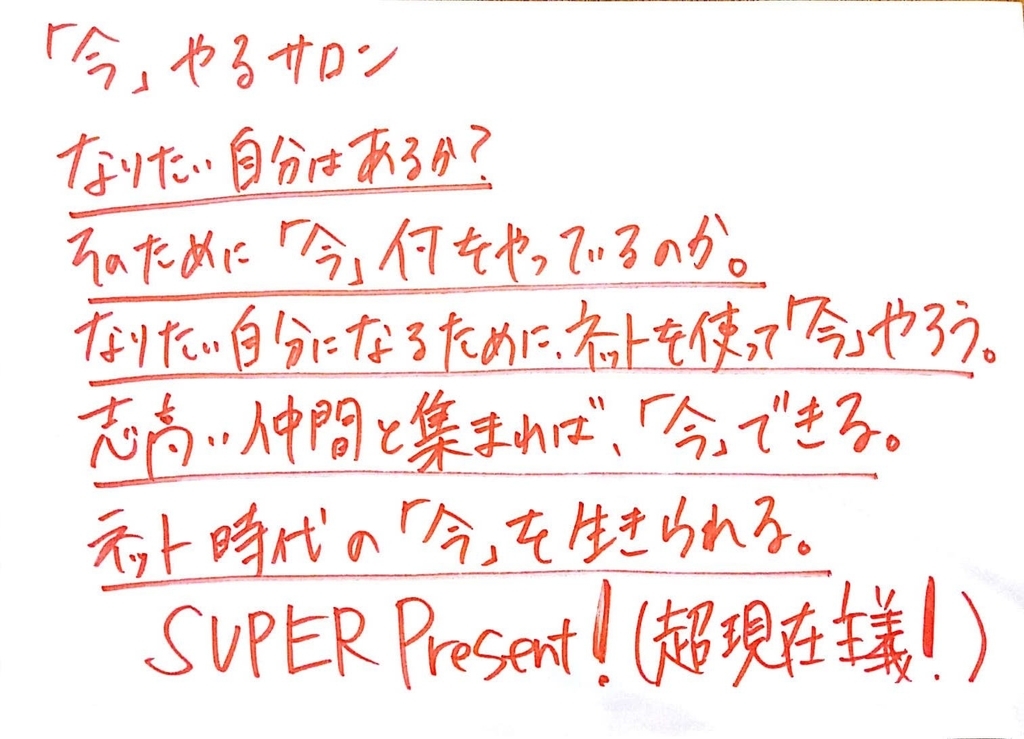 「今」やるサロン
なりたい自分はあるか?
そのために「今」何をやっているのか。
なりたい自分になるために、ネットを使って「今」やろう。
志高い仲間と集まれば、「今」できる。
ネット時代の「今」を生きられる。
SUPER Present!(超現在主義!)